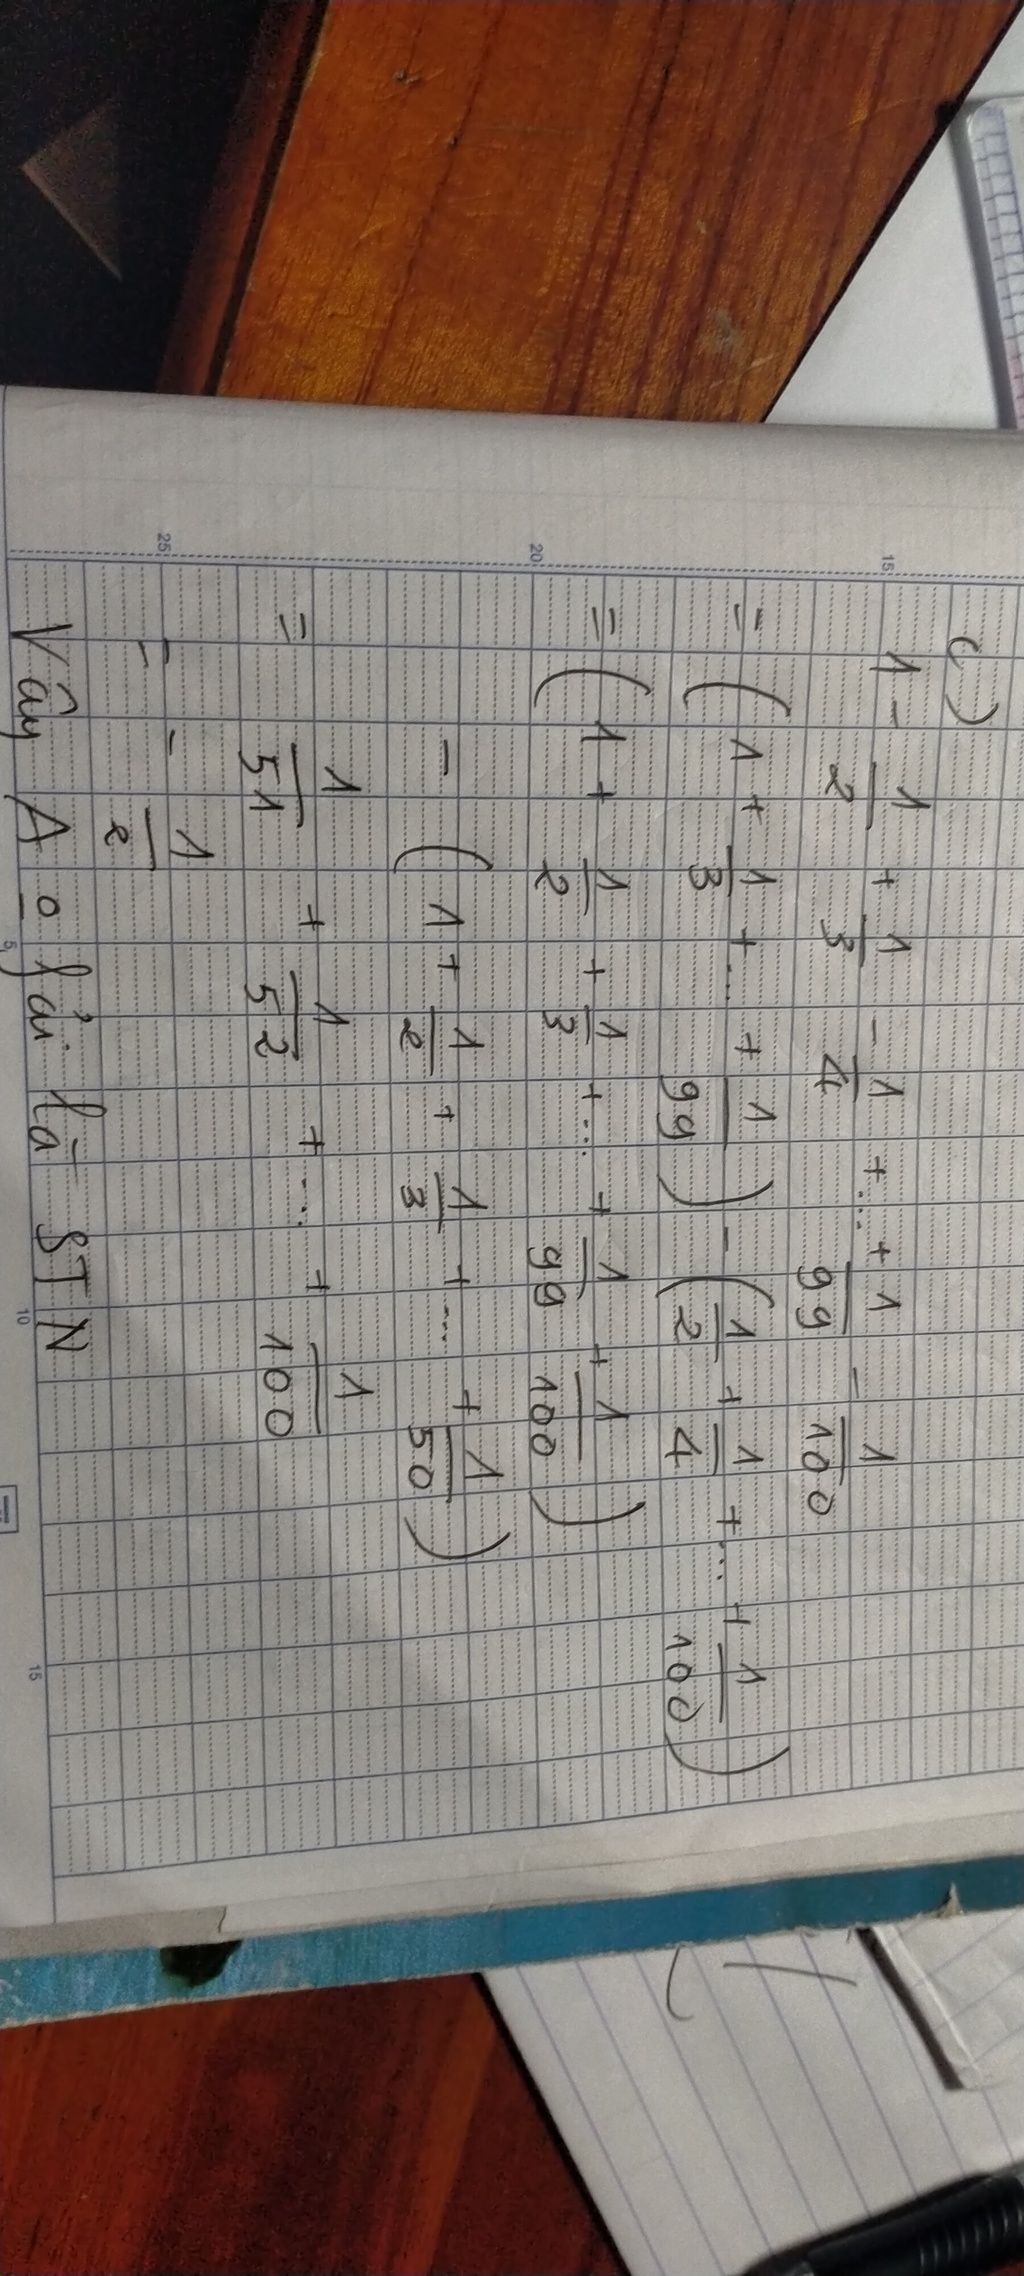 c)
1 - 1/2 + 1/3 - 1/4 + ... + 1/99 - 1/100
= (1 + 1/3 + ... + 1/99) - (1/2 + 1/4 + ... + 1/100)
= (1 + 1/2 + 1/3 + ... + 1/99 + 1/100)
- (1 + 1/2 + 1/3 + ... + 1/50)
= 1/51 + 1/52 + ... + 1/100
= - 1/2
Vậy A o fải là STN
15
20
25
5
10
15